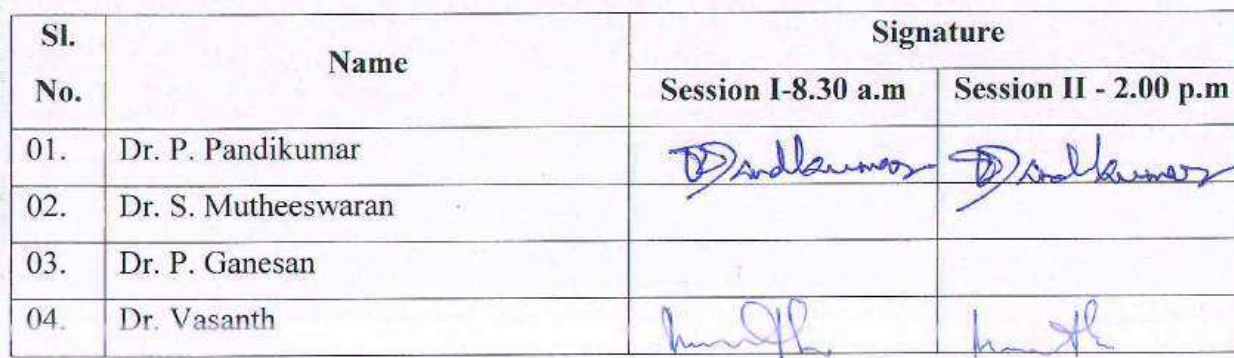 Sl. No. Name Signature
Session I-8.30 a.m Session II - 2.00 p.m
01. Dr. P. Pandikumar
02. Dr. S. Mutheeswaran
03. Dr. P. Ganesan
04. Dr. Vasanth